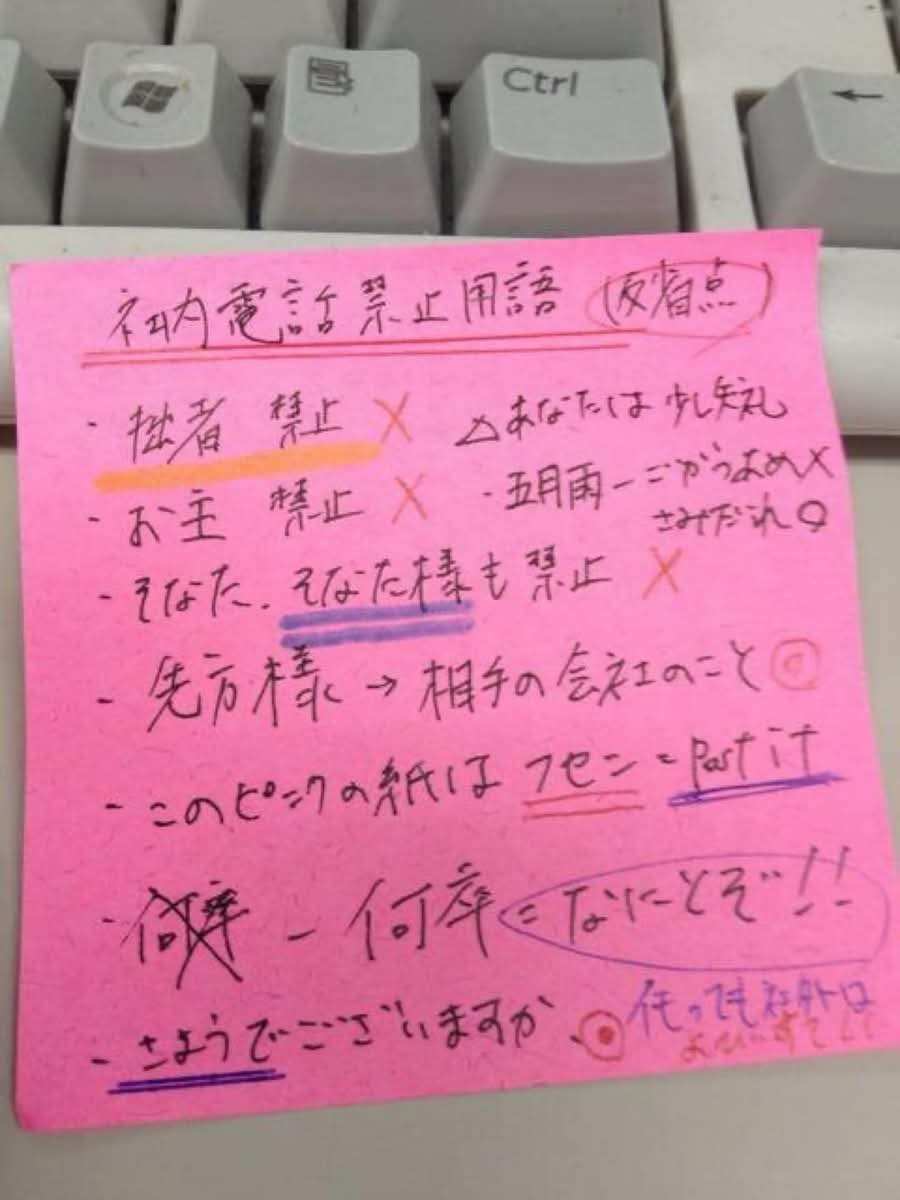 Ctrl
←
社内電話禁止用語 反省点
・拙者 禁止 X △あなたは少し失礼
・お主 禁止 X ・五月雨-ごがつあめX
さみだれ○
・そなた、そなた様も禁止 X
・先方様→相手の会社のこと
・このピンクの紙は フセン=Post it
・何率-何卒=なにとぞ!!
・さようでございますか
何っても社外は
よびすてして